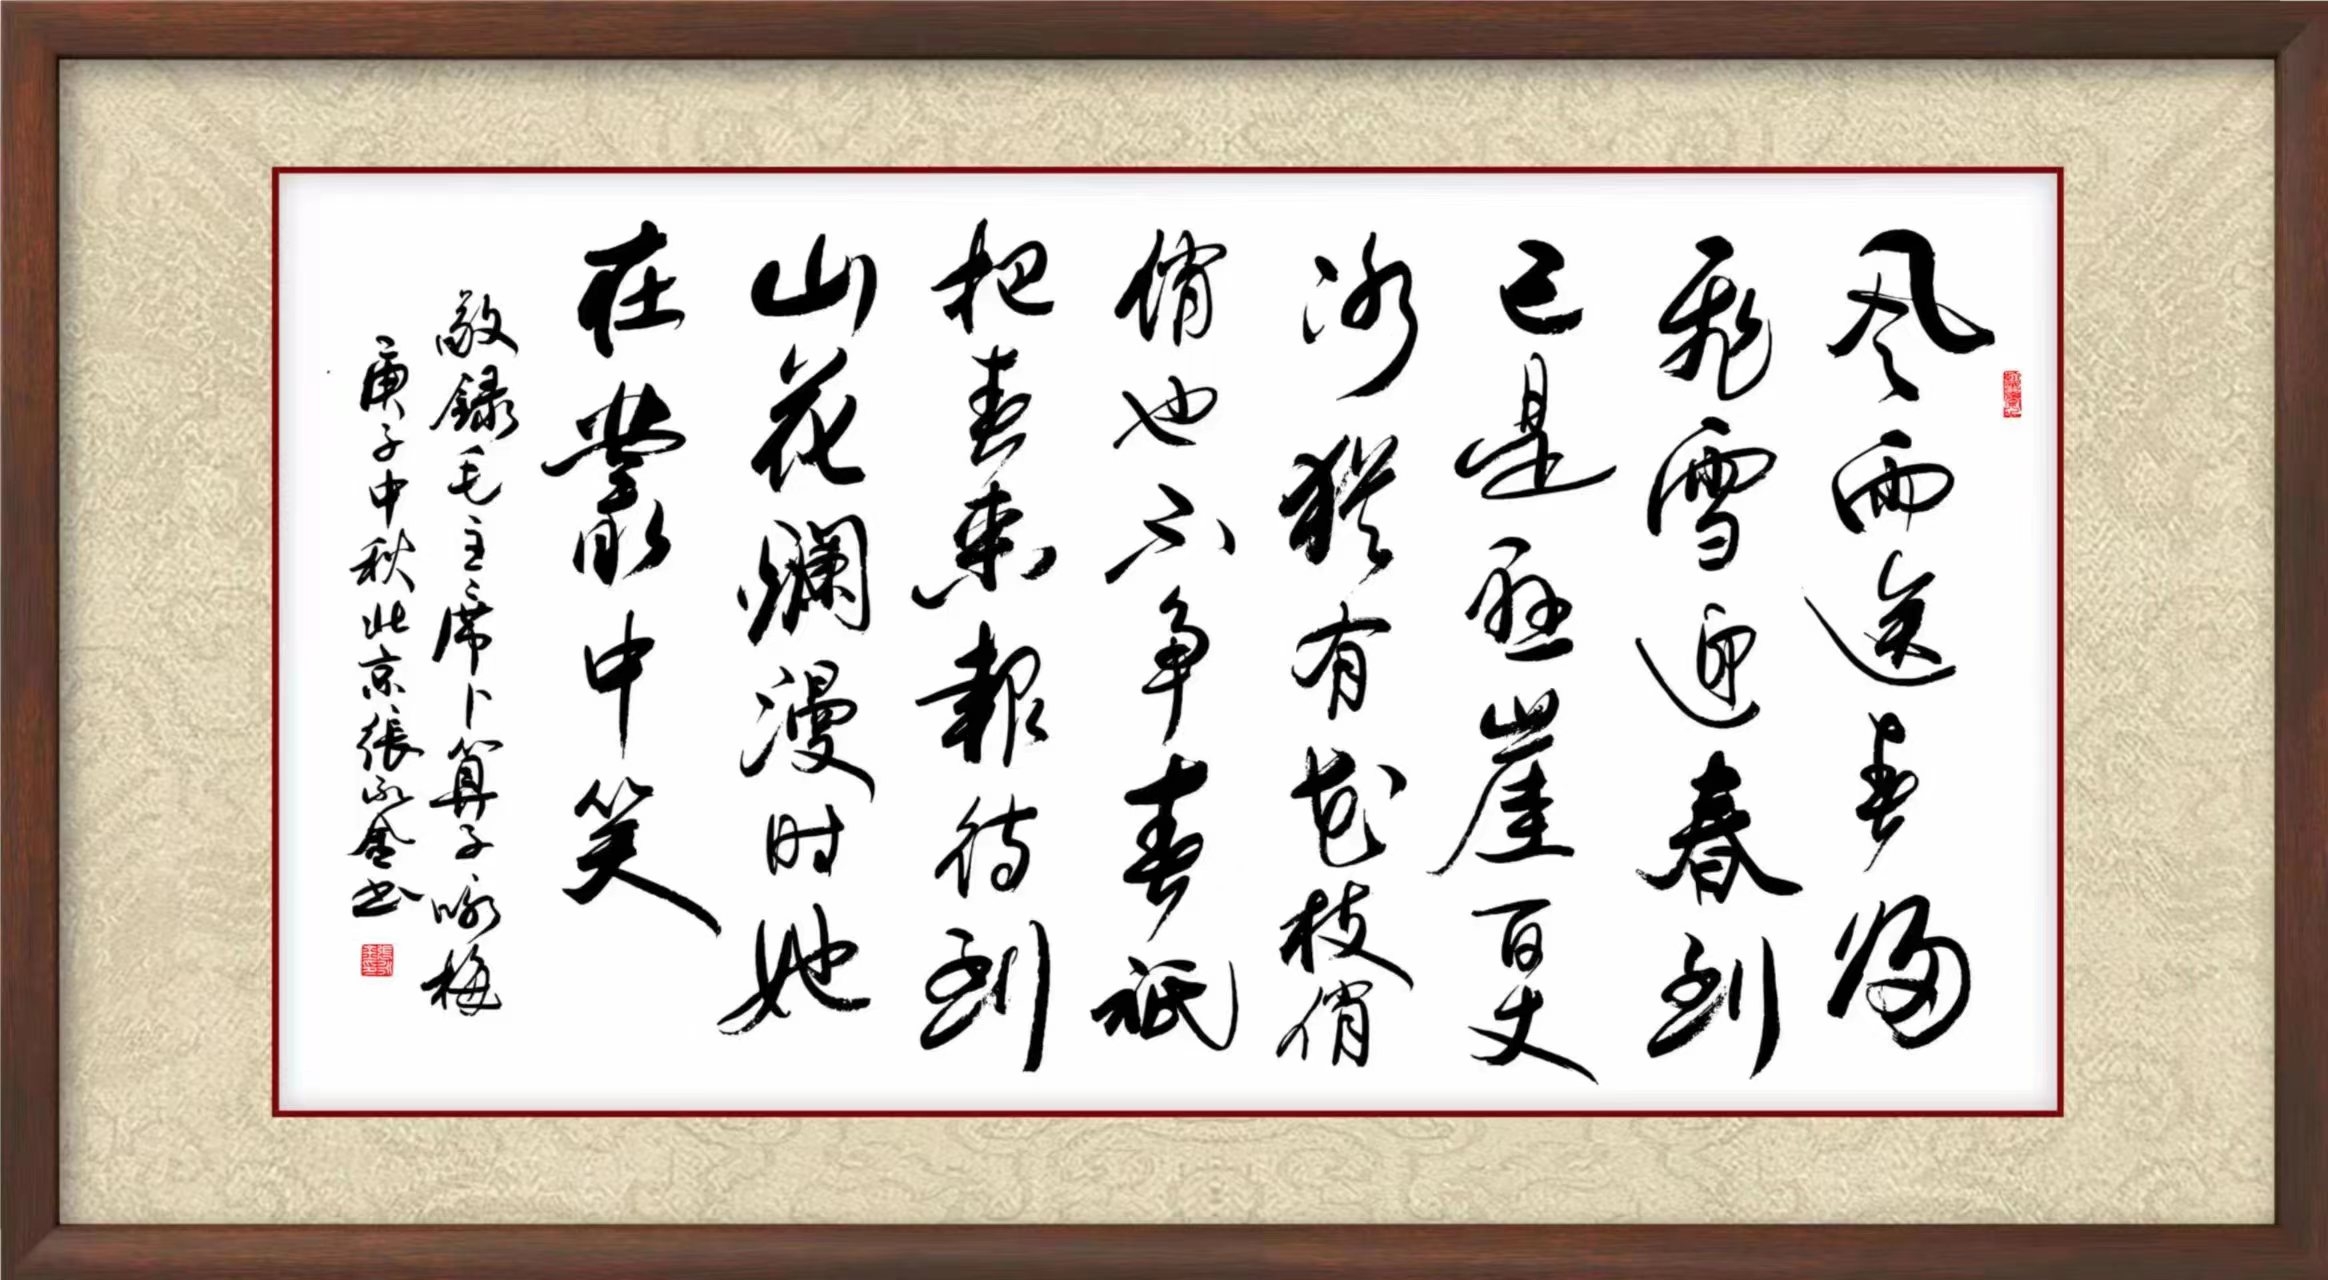 风雨送春归
飛雪迎春到
已是悬崖百丈
冰猶有花枝俏
俏也不争春祇
把春来報待到
山花爛漫时她
在叢中笑
敬録毛主席卜算子咏梅
庚子中秋北京張永金书